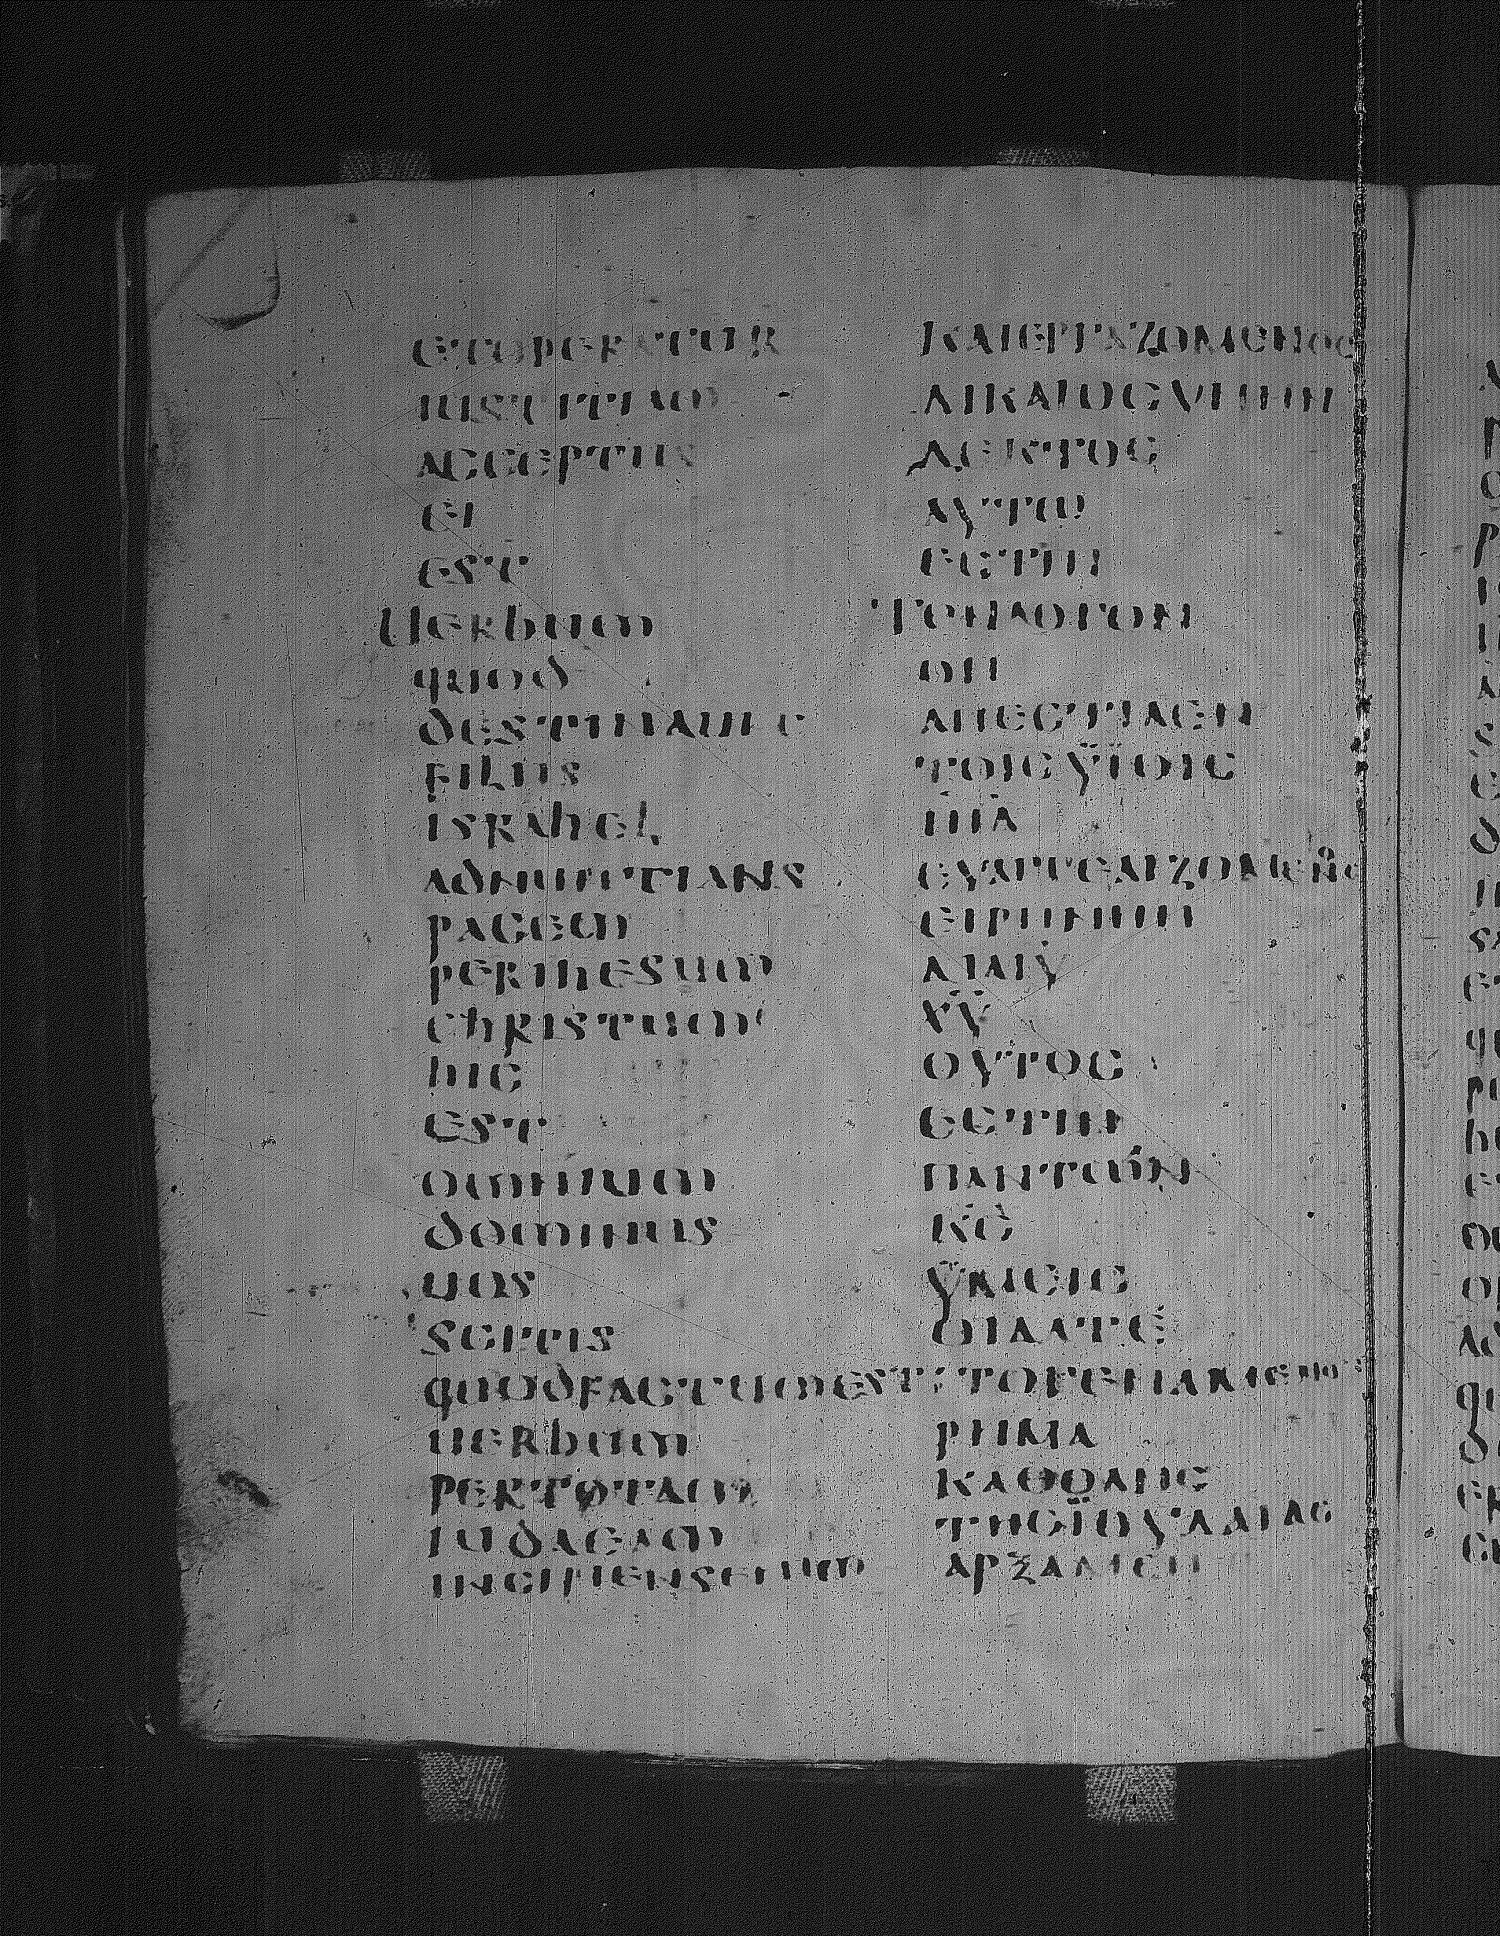 etoperatur
iustitiam
acceptus
ei
est
Uerbum
quod
destinauit
filiis
israhel
adnuntians
pacem
perihesum
christum
hic
est
omnium
dominus
uos
scitis
quodfactumest
uerbum
pertotam
iudaeam
incipiensenim
ΚΑΙΕΡΓΑΖΟΜΕΝΟϹ
ΔΙΚΑΙΟϹΥΝΗΝ
ΔΕΚΤΟϹ
ΑΥΤΩ
ΕϹΤΙΝ
ΤΟΝΛΟΓΟΝ
ΟΝ
ΑΠΕϹΤΙΛΕΝ
ΤΟΙϹΫΪΟΙϹ
ΙΗΛ
ΕΥΑΓΓΕΛΙΖΟΜΕΝΟϹ
ΕΙΡΗΝΗΝ
ΔΙΑΙΥ
ΧΥ
ΟΥΤΟϹ
ΕϹΤΙΝ
ΠΑΝΤΩΝ
ΚϹ
ΫΜΕΙϹ
ΟΙΔΑΤΕ
ΤΟΓΕΝΑΜΕΝΟΝ
ΡΗΜΑ
ΚΑΘΟΛΗϹ
ΤΗϹΪΟΥΔΑΙΑϹ
ΑΡΞΑΜΕΝ